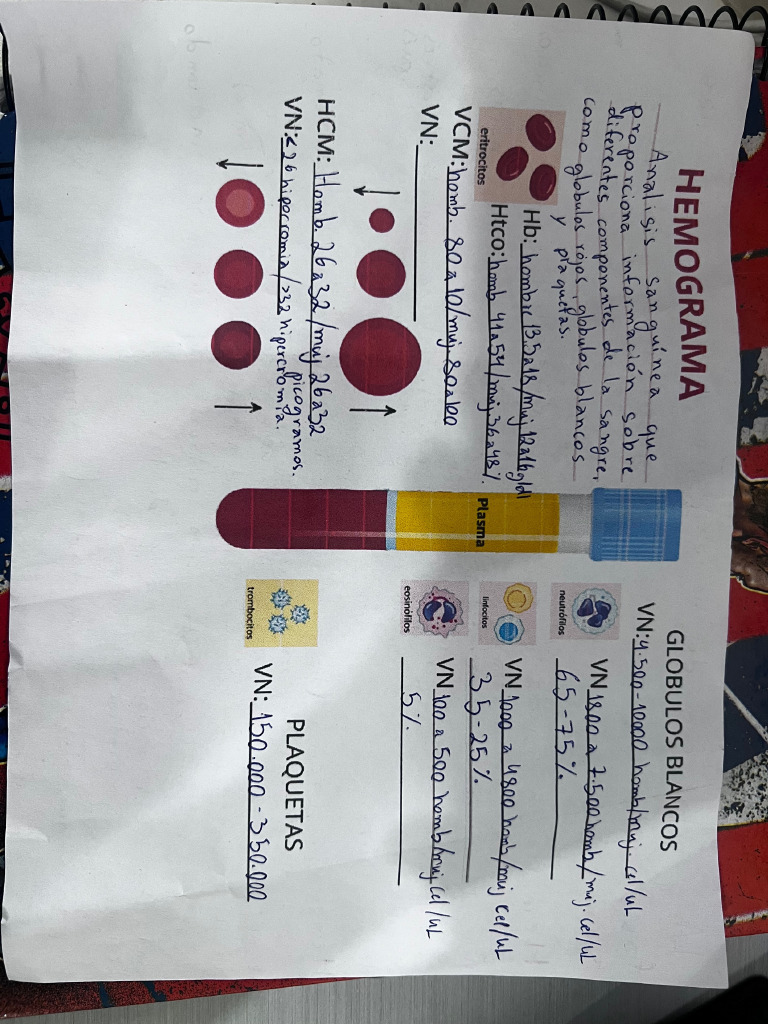 HEMOGRAMA
Analisis sanguínea que
proporciona información sobre
diferentes componentes de la sangre,
como globulos rójos, globulos blancos
y plaquetas.
eritrocitos
Hb: hombre 13.5 a 18/muj 12 a 16 g/dl
Htco: homb 41 a 54/muj 36 a 48%
VCM: homb. 80 a 10/muj 80 a 100
VN:
HCM: Homb. 26 a 32/muj 26 a 32
picogramos.
VN: < 26 hipocromia/>32 hipercromia.
Plasma
GLOBULOS BLANCOS
VN: 4.500-10000 homb/muj. cel/uL
neutrófilos
VN 1800 a 7.500 homb/muj. cel/uL
65-75%
linfocitos
VN 1000 a 4800 homb/muj cel/uL
35-25%
eosinófilos
VN 100 a 500 homb/muj. cel/uL
5%
PLAQUETAS
trombocitos
VN: 150.000 - 350.000